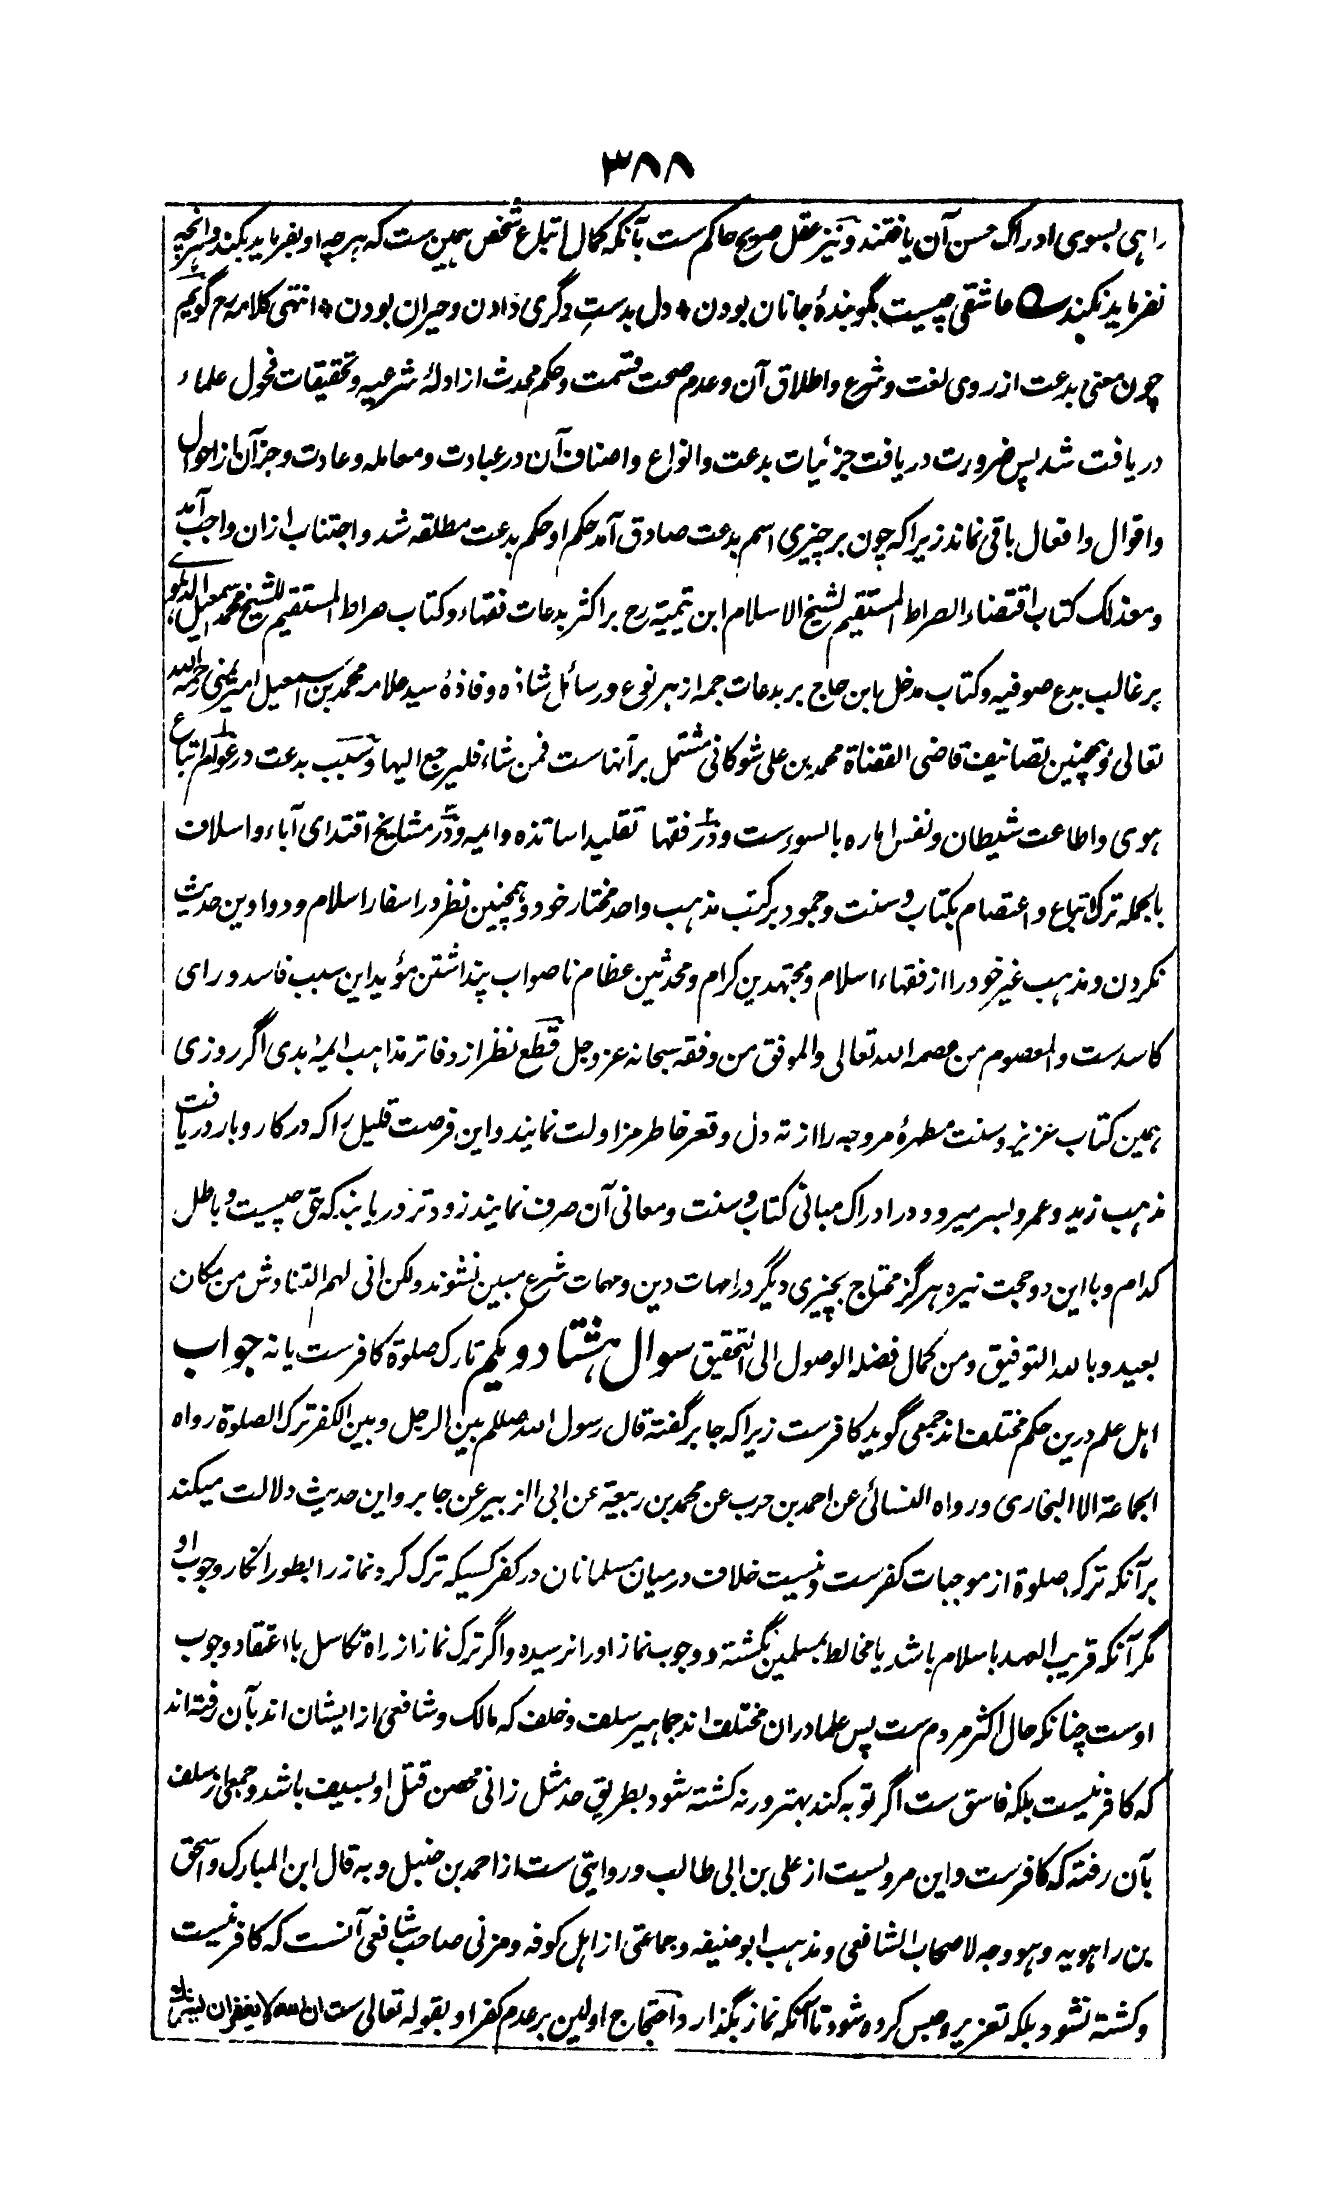 ٣٨٨
راهی بسوی ادراک حسن آن یافتند و نیز عقل صریح حاکم ست بآنکه کمال اتباع شخص همین ست که هرچه او بفرماید بکند و هرانچه
نفرماید نکند عاشقی چیست بگو بندهٔ جانان بودن * دل بدست دگری دادن و حیران بودن * انتهی کلامه رح گویم
چون معنی بدعت از روی لغت و شرع و اطلاق آن و عدم صحت قسمت و حکم محدث از ادلهٔ شرعیه و تحقیقات فحول علماء
دریافت شد پس ضرورت دریافت جزئیات بدعت و انواع و اصناف آن در عبادت و معامله و عادت و جز آن از احوال
و اقوال و افعال باقی نماند زیراکه چون بر چیزی اسم بدعت صادق آمد حکم او حکم بدعت مطلقه شد و اجتناب ازان واجب آمد
و معذلک کتاب اقتضاء الصراط المستقیم لشیخ الاسلام ابن تیمیه رح بر اکثر بدعات فقهاء و کتاب صراط المستقیم للشیخ محمد اسمعیل الدهلوی
بر غالب بدع صوفیه و کتاب مدخل ابن حاج بر بدعات جمه از هر نوع و رسائل شاذه و فاذهٔ سید علامه محمد بن اسمعیل امیر یمنی رحمه الله
تعالی و همچنین تصانیف قاضی القضاة محمد بن علی شوکانی مشتمل بر آنهاست فمن شاء فلیرجع الیها و سبب بدعت در عوام اتباع
هوی و اطاعت شیطان و نفس اماره بالسوءست و در فقها تقلید اساتذه و ایمه و در مشایخ اقتدای آباء و اسلاف
بالجمله ترک اتباع و اعتصام بکتاب و سنت و جمود بر کتب مذهب واحد مختار خود و همچنین نظر در اسفار اسلام و دواوین حدیث
نکردن و مذهب غیر خود را از فقهاء اسلام و مجتهدین کرام و محدثین عظام ناصواب پنداشتن مؤید این سبب فاسد و رای
کاسدست و المعصوم من عصمه الله تعالی و الموفق من وفقه سبحانه عز و جل قطع نظر از دفاتر مذاهب ایمهٔ هدی اگر روزی
همین کتاب عزیز و سنت مطهرهٔ مروجه را از ته دل و قعر خاطر مزاولت نمایند و این فرصت قلیل را که در کار و بار دریافت
مذهب زید و عمرو بسر میرود در ادراک مبانی کتاب و سنت و معانی آن صرف نمایند زودتر دریابند که حق چیست و باطل
کدام و با این دو حجت نیره هرگز محتاج بچیزی دیگر در امهات دین و مهمات شرع مبین نشوند ولکن انی لهم التناوش من مکان
بعید و بالله التوفیق و من کمال فضله الوصول الی التحقیق سوال هشتاد و یکم تارک صلوة کافرست یا نه جواب
اهل علم درین حکم مختلف اند جمعی گوید کافرست زیراکه جابر گفته قال رسول الله صللم بین الرجل و بین الکفر ترک الصلوة رواه
الجماعة الا البخاری و رواه النسائی عن احمد بن حرب عن محمد بن ربیعة عن ابی الزبیر عن جابر و این حدیث دلالت میکند
برآنکه ترک صلوة از موجبات کفرست و نیست خلاف درمیان مسلمانان در کفر کسیکه ترک کرد نماز را بطور انکار وجوب او
مگر آنکه قریب العهد باسلام باشد یا مخالط مسلمین نگشته و وجوب نماز او را نرسیده و اگر ترک نماز از راه تکاسل با اعتقاد وجوب
اوست چنانکه حال اکثر مردم ست پس علما دران مختلف اند جماهیر سلف و خلف که مالک و شافعی از ایشان اند بآن رفته اند
که کافر نیست بلکه فاسق ست اگر توبه کند بهتر ورنه کشته شود بطریق حد مثل زانی محصن قتل او بسیف باشد و جمعی از سلف
بآن رفته که کافرست و این مرویست از علی بن ابی طالب و روایتی ست از احمد بن حنبل و به قال ابن المبارک و اسحق
بن راهویه و هو وجه لاصحاب الشافعی و مذهب ابو حنیفه و جماعتی از اهل کوفه و مزنی صاحب شافعی آنست که کافر نیست
و کشته نشود بلکه تعزیر و حبس کرده شود تا آنکه نماز بگذارد و احتجاج اولین بر عدم کفر او بقوله تعالی ست ان الله لا یغفر ان یشرک